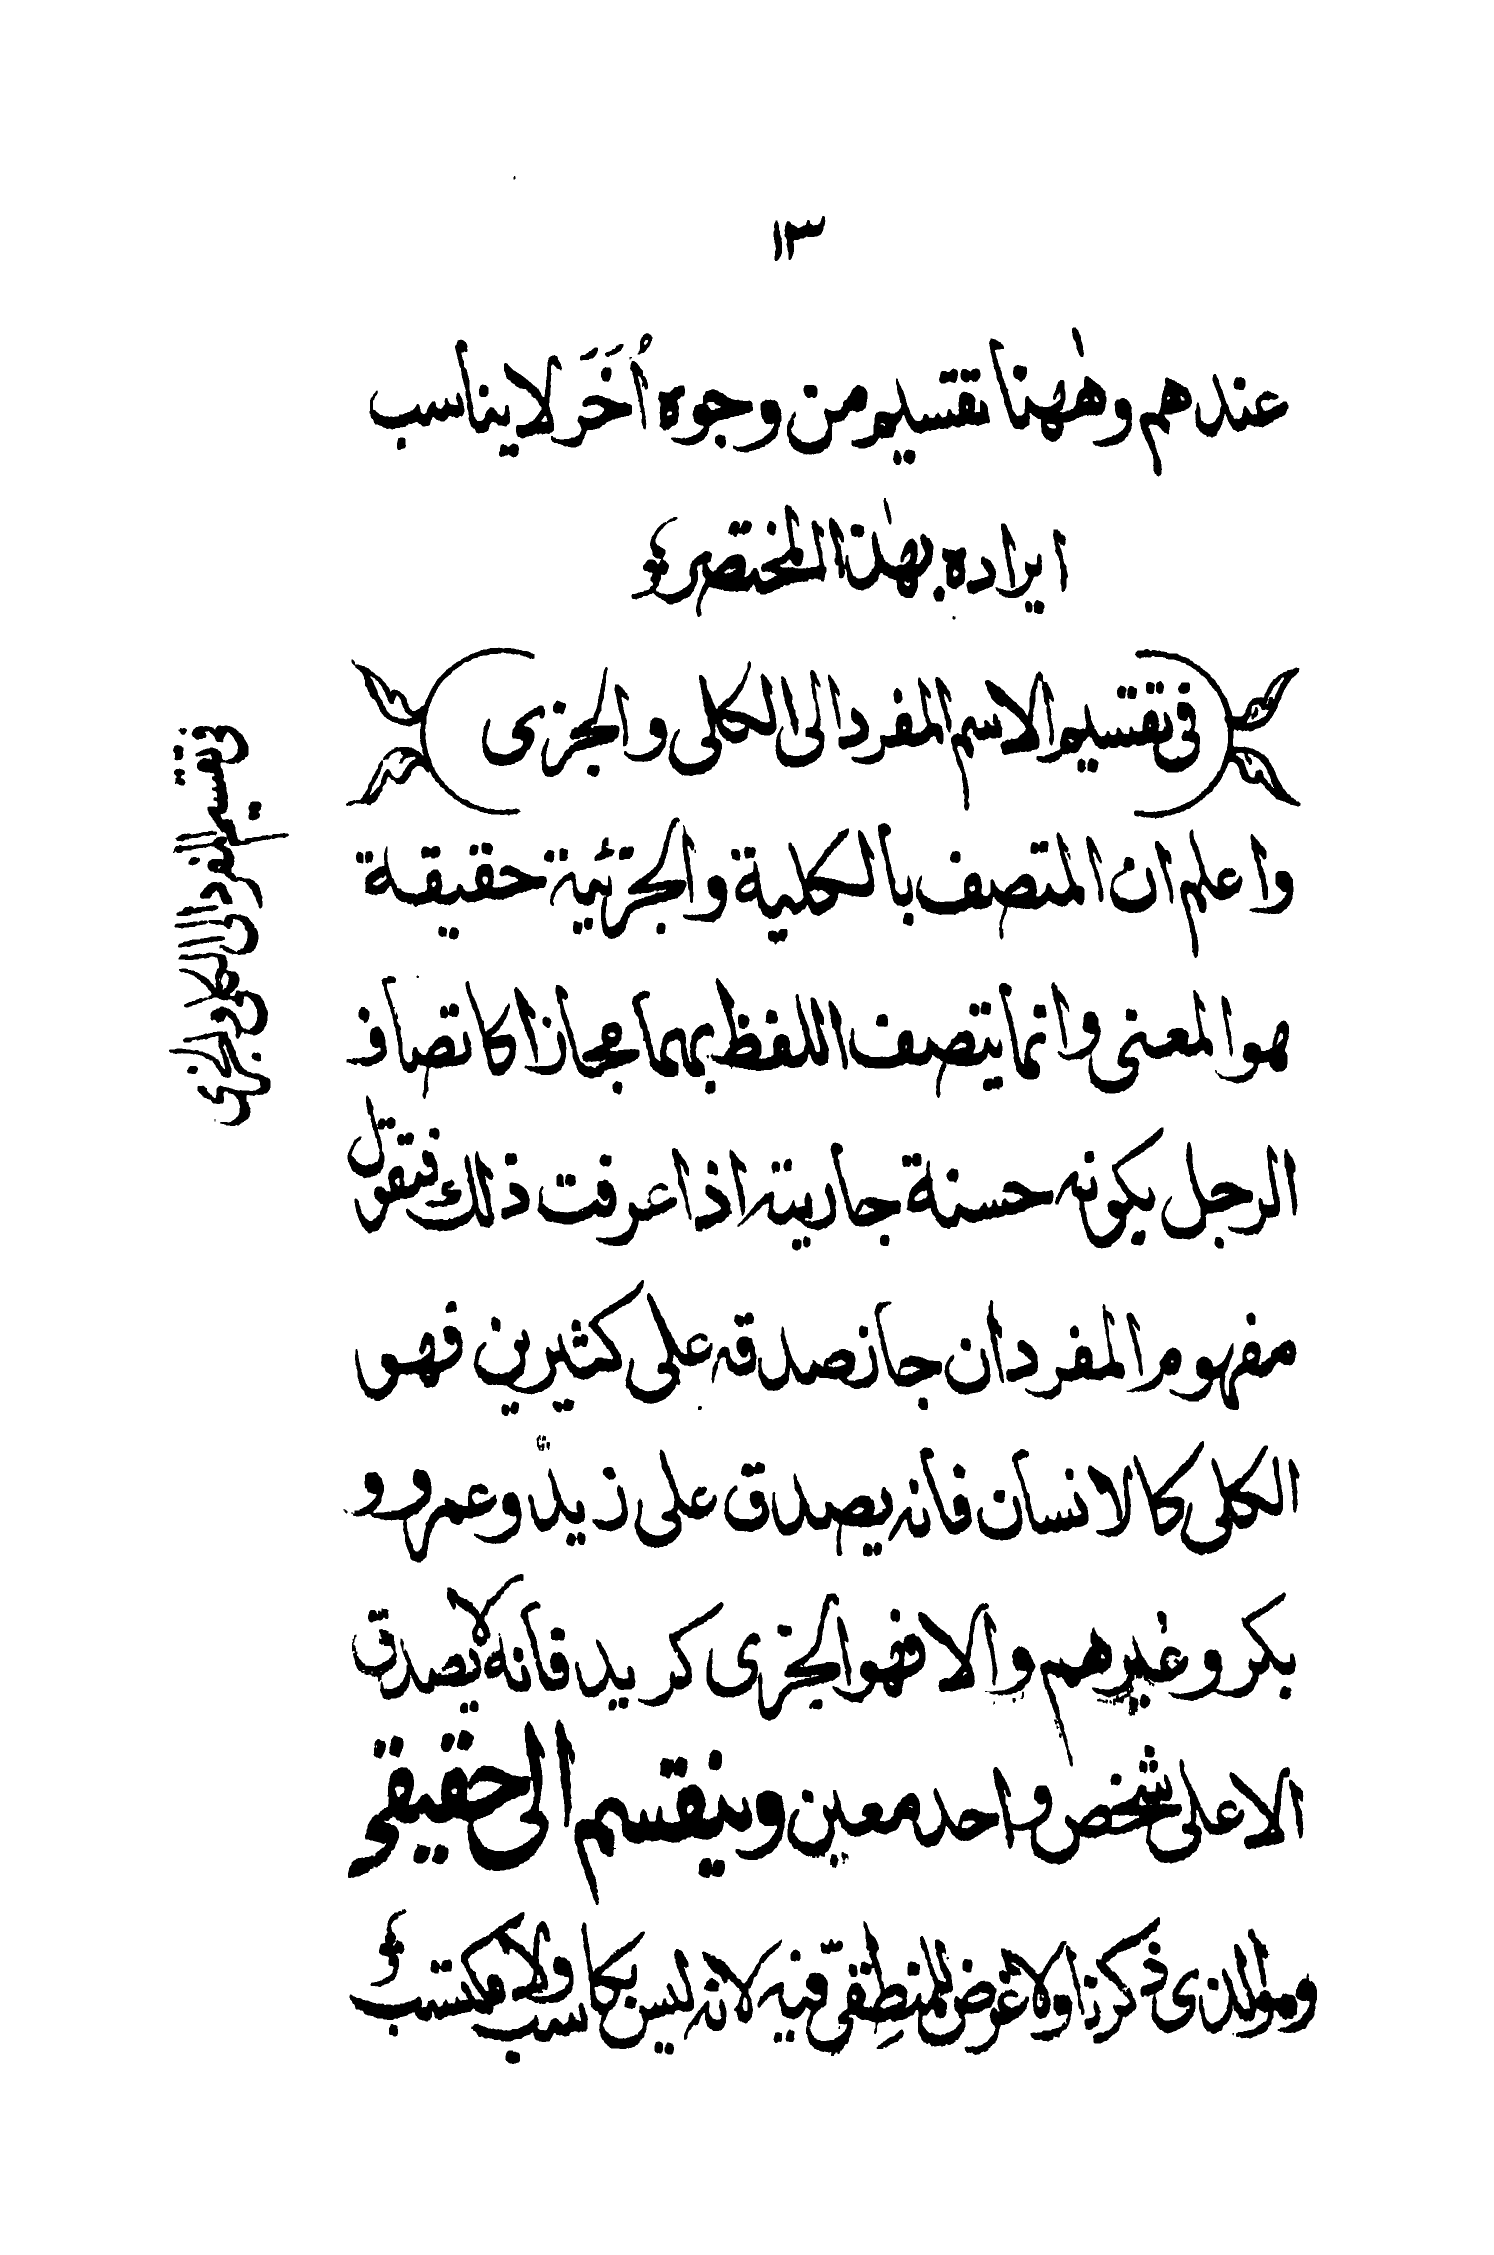 ١٣
عندهم وهٰهنا تقسيم من وجوه أُخَرَ لا يناسب
ايراده بهٰذا المختصر
فى تقسيم الاسم المفرد الى الكلى والجزى
واعلم ان المتصف بالكلية والجزئية حقيقة
هو المعنى وانما يتصف اللفظ بهما مجازا كاتصاف
الرجل بكونه حسنة جاريته اذا عرفت ذلك فتقول
مفهوم المفرد ان جاز صدقه على كثيرين فهو
الكلى كالانسان فانه يصدق على زيد وعمرو و
بكر وغيرهم والا فهو الجزى كزيد فانه لا يصدق
الا على شخص واحد معين وينقسم الى حقيقى
وهو الذى ذكرنا ولا غرض للمنطقىّ فيه لانه ليس بكاسب ولا مكتسب
فى تقسيم المفرد الى الكلى والجزى